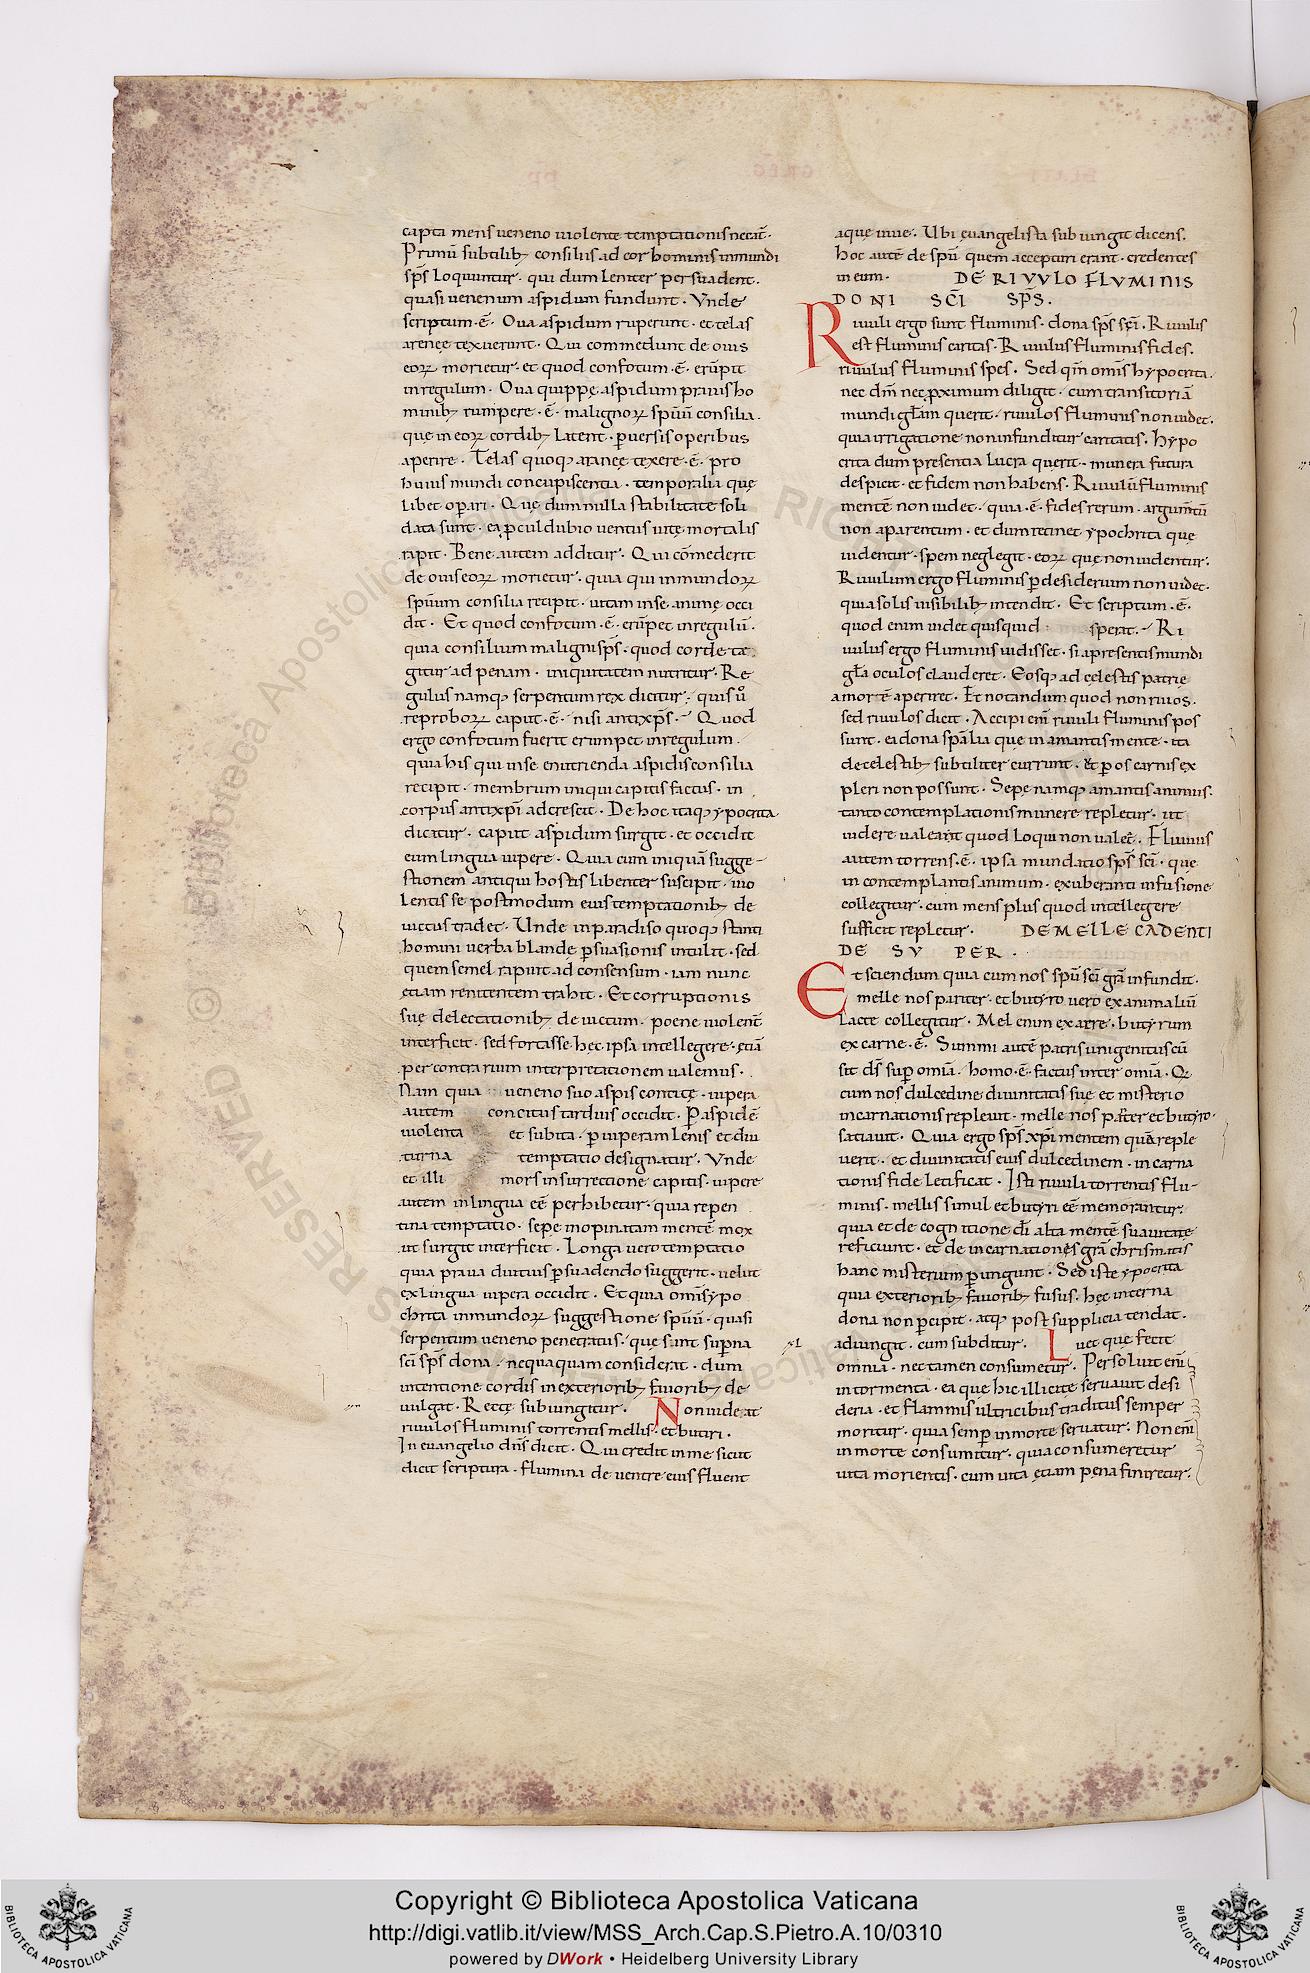 capta mens ueneno uiolente temptationis necat̄.
Primū subtilib; consiliis ad cor hominis inmundi
sp̄s loquuntur. qui dum leniter persuadent.
quasi uenenum aspidum fundunt. Vnde
scriptum .ē. Oua aspidum ruperunt. et telas
aranęe texuerunt. Qui commedunt de ouis
eoꝝ morietur. et quod confotum .ē. erūpit
in regulum. Oua quippe aspidum prauis ho
minib; rumpere .ē. malignoꝝ sp̄uū consilia.
quę in eoꝝ cordib; latent. ꝑuersis operibus
aperire. Telas quoq; aranęę texere .ē. pro
huius mundi concupiscentia. temporalia quę
libet oꝑari. Quę dum nulla stabilitate soli
data sunt. ea ꝓculdubio uentus uitę mortalis
rapit. Bene autem additur. Qui cōmederit
de ouis eoꝝ morietur. quia qui inmundoꝝ
spūum consilia recipit. uitam in se animę occi
dit. Et quod confotum .ē. erūpet in regulū.
quia consilium maligni sp̄s. quod corde te
gitur ad penam. iniquitatem nutritur. Re
gulus namq; serpentum rex dicitur. quis ů
reproboꝝ caput .ē. nisi antixp̄s. Quod
ergo confotum fuerit erumpet in regulum.
quia his qui in se enutrienda aspidis consilia
recipit. membrum iniqui capitis factus. in
corpus antixp̄i adcrescit. De hoc itaq; ypocrita
dicatur. caput aspidum surgit. et occidit
eum lingua uipere. Quia cum iniquā sugge-
stionem antiqui hostis libenter suscipit. uio
lentis se postmodum eius temptationib; de
uictus tradet. Unde in paradiso quoq; stanti
homini uerba blande ꝑsuasionis intulit. sed
quem semel rapuit ad consensum. iam nunc
etiam renitentem trahit. Et corruptionis
suę delectationib; deuictum. poene uiolent̄
interficit. sed fortisse hęc ipsa intellegere. etiā
per contrarium interpretationem ualemus.
Nam quia ueneno suo aspis concite. uipera
autem concitus tardius occidit. P aspidē
uiolenta et subita. ꝑ uiperam lenis et diu
turna temptatio designatur. Vnde
et illi mors in surrectione capitis. uipere
autem in lingua eē perhibetur. quia repen
tina temptatio. sepe inopinatam mentē mox
ut surgit interficit. Longa uero temptatio
quia praua diutius ꝑsuadendo suggerit. uelut
ex lingua uipera occidit. Et quia omīs ypo
chrita inmundoꝝ suggestione spūū. quasi
serpentum ueneno penetratus. que sunt suꝑna
sc̄i sp̄s dona. nequaquam considerat. dum
intentione cordis in exteriorib; fauorib; de
uulgat. Recte subiungitur. Non uideat
riuulos fluminis torrentis mellis. et butiri.
In euangelio dn̄s dicit. Qui credit in me sicut
dicit scriptura. flumina de uentre eius fluent
aquę uiue. Ubi euangelista subiungit dicens.
hoc autē de spū quem accepturi erant. credentes
in eum. DE RIVVLO FLVMINIS
DONI SC̄I SP̄S.
Riuuli ergo sunt fluminis. dona sp̄s sc̄i. Riuulis
est fluminis caritas. Riuulus fluminis fides.
riuulus fluminis spes. Sed qm̄ omīs hypocrita.
nec dm̄ nec ꝓximum diligit. cum transitoriā
mundi glām querit. riuulos fluminis non uidet.
quia irrigatione non infunditur caritatis. hypo
crita dum presentia lucra querit. munera futura
despicit. et fidem non habens. Riuulū fluminis
mentē non uidet. quia .ē. fides rerum. argum̄tū
non aparentum. et dum retinet ypochrita quę
uidentur. spem neglegit. eoꝝ que non uidentur.
Riuulum ergo fluminis ꝑ desiderium non uidet.
quia solis uisibilib; intendit. Et scriptum .ē.
quod enim uidet quis quid sperat. Ri
uulus ergo fluminis uidisset. si a presentis mundi
gl̄a oculos clauderet. Eosq; ad celestis patrię
amorē aperiret. Et notandum quod non riuos.
sed riuulos dicit. Accipi em̄ riuuli fluminis pos
sunt. ea dona sp̄alia que in amantis mente. ita
de celestib; subtiliter currunt. ut ꝑ os carnis ex
pleri non possunt. Sepe namq; amantis animus.
tanto contemplationis munere repletur. ut
uidere ualeant quod loqui non ualet. Fluuius
autem torrens .ē. ipsa inundatio sp̄s sc̄i. que
in contemplantis animum. exuberanti infusione
collegitur. cum mens plus quod intellegere
sufficit repletur. DE MELLE CADENTI
DE SVPER.
Et sciendum quia cum nos spū sc̄i gr̄a infundit.
melle nos pariter. et butyro uero ex animaliū
lacte collegitur. Mel enim ex aere. butyrum
ex carne .ē. Summi autē patris unigenitus cū
sit ds̄ suꝑ omīa. homo .ē. factus inter omīa. Q;
cum nos dulcedine diuinitatis suę et misterio
incarnationis repleuit. melle nos pař̄ter et butyro.
satiauit. Quia ergo sp̄s xp̄i mentem quā reple
uerit. et diuinitatis eius dulcedinem. incarna
tionis fide letificat. Isti riuuli torrentis flu-
minis. mellis simul et butyri eē memorantur.
quia et de cognitione dī alta mentē suauitate
reficiunt. et de incarnationęs gr̄a chrismatis
hanc misterium ꝑungunt. Sed iste ypocrita
quia exteriorib; fauorib; fusus. hęc interna
dona non ꝑcipit. atq; post supplicia tendat.
adiungit. cum subditur. Luet quę fecit
omnia. nec tamen consumetur. Persoluit em̄
in tormenta. ea que hic illicite seruauit desi
deria. et flammis ultricibus traditus semper
moritur. quia semꝑ in morte seruatur. Non em̄
in morte consumitur. quia consumeretur
uita morientis. cum uita etiam pena finiretur.
Copyright © Biblioteca Apostolica Vaticana
http://digi.vatlib.it/view/MSS_Arch.Cap.S.Pietro.A.10/0310
powered by DWork • Heidelberg University Library
BIBLIOTECA APOSTOLICA VATICANA
BIBLIOTECA APOSTOLICA VATICANA